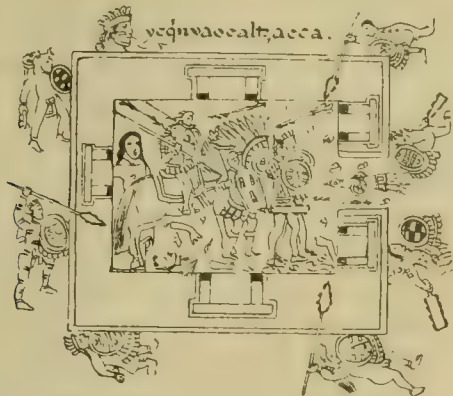 ycq́nvaocaltzacca.